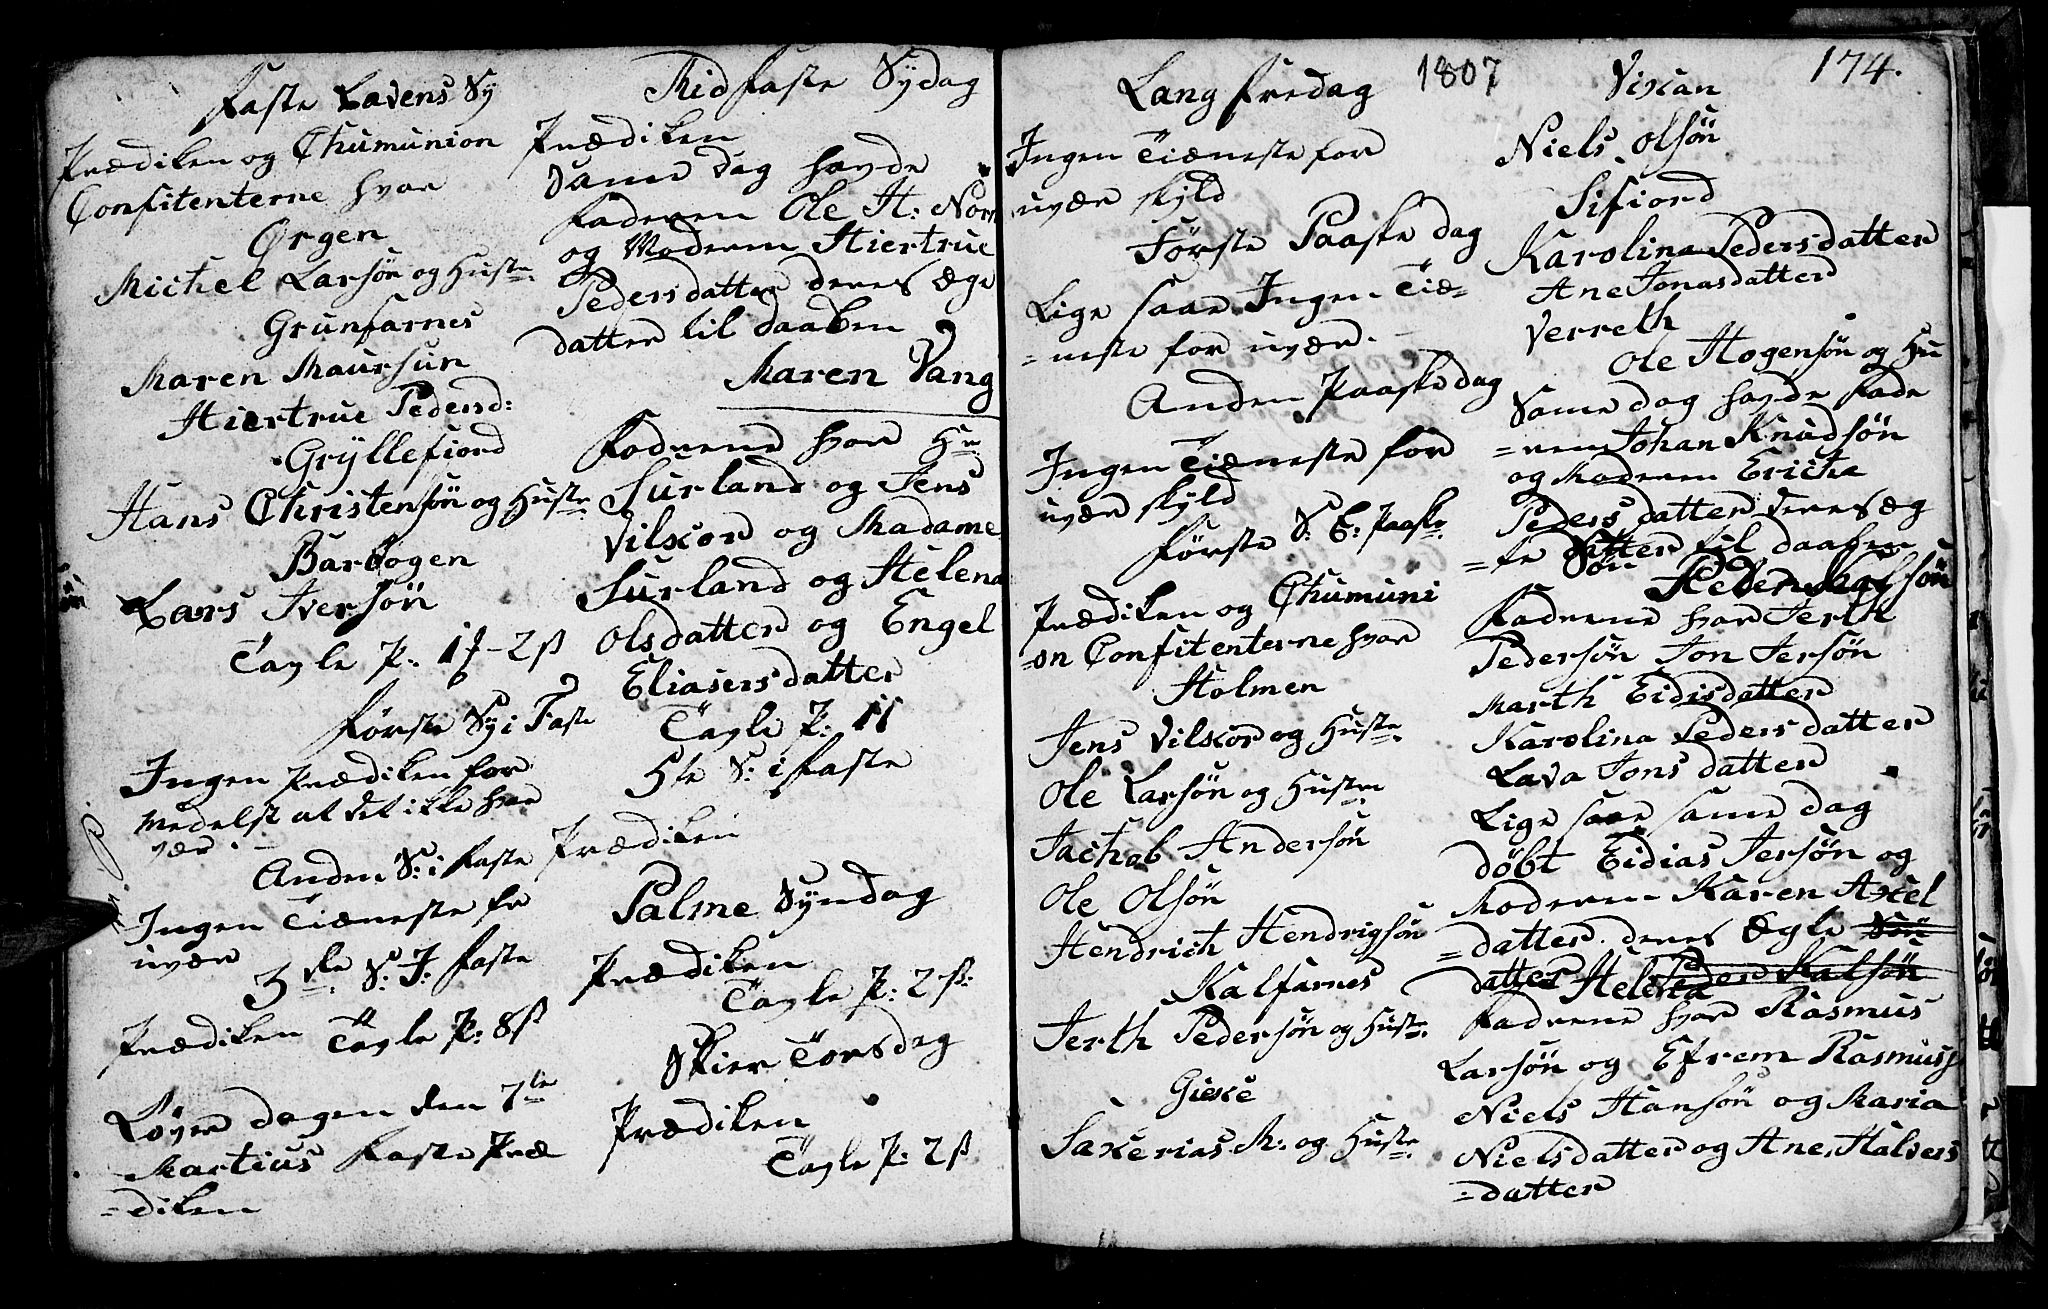 Faste Lavens Sy
Prædiken og Chumunion
Confitenterne hvar
Ørgen
Michel Larsön og Hust:
Grunfarnes
Maren Maursun
Hiertrue Pedersd:
Gryllefiord
Hans Christensön og Huste
Barbogen
Lars Iversön
Tavle P: 1 - 2 ß
Förste Sy i Faste
Ingen Prædiken for
medelst at det ikke hvar
vær
Anden S: i Faste
Ingen Tiæneste for
uvær
3de S: I: Faste
Prædiken Tavle P: 8 ß
Löver dagen den 7de
Martius Faste Præ
=diken
Mid Faste Sydag
Prædiken
Same dag havde
Faderen Ole H: Nor
og Moderen Hiertrue
Pedersdatter deres Ægte
datter til daaben
Maren Vang
Fadrene hvar Hr
Surland og Jens
Vilscor og Madame
Surland og Helena
Olsdatter og Engel
Eliasersdatter
Tavle P: 11
5te S: i Faste
Prædiken
Palme Syndag
Prædiken
Tavle P: 2 ß:
Skier Torsdag
Prædiken
Tavle P: 2 ß
1807
174.
Lang Fredag
Ingen Tiæneste for
uvær skyld
Förste Paaske dag
Lige saa Ingen Tiæ=
=neste for uvær.
Anden Paaske dag
Ingen Tiæneste for
uvær skyld
Förste S: E: Paaske
Prædiken og Chumuni
=on Confitenterne hvar
Holmen
Jens Vilscor og Huste.
Ole Larsön og Husten
Jachob Andersön
Ole Olsön
Hendrich Hendrigsön
Kalfarnes
Jerth Pedersön og Huste.
Giesce
Sakerias M: og Huste
Vixan
Niels Olsön
Sifiord
Karolina Pedersdatter
Ane Jonasdatter
Verreth
Ole Hogensön og Hu
Same dag havde Fade
=ren Johan Knudsön
og Moderen Eriche
Pedersdatter deres Æg
=te datter til daaben
Sön Peder
Fadrene hvar Jerth
Pedersön Jon Jersön
Marth Eidisdatter
Karolina Pedersdatter
Lava Jonsdatter
Lige saa same dag
döbt Eidias Jersön og
Moderen Karen Axel
=datter deres Ægte Sön
datter Helena Peder Kalsön
Fadrene hvar Rasmus
Larsön og Efrem Rasmuss
Niels Hansön og Maria
Nielsdatter og Ane Halvers
=datter